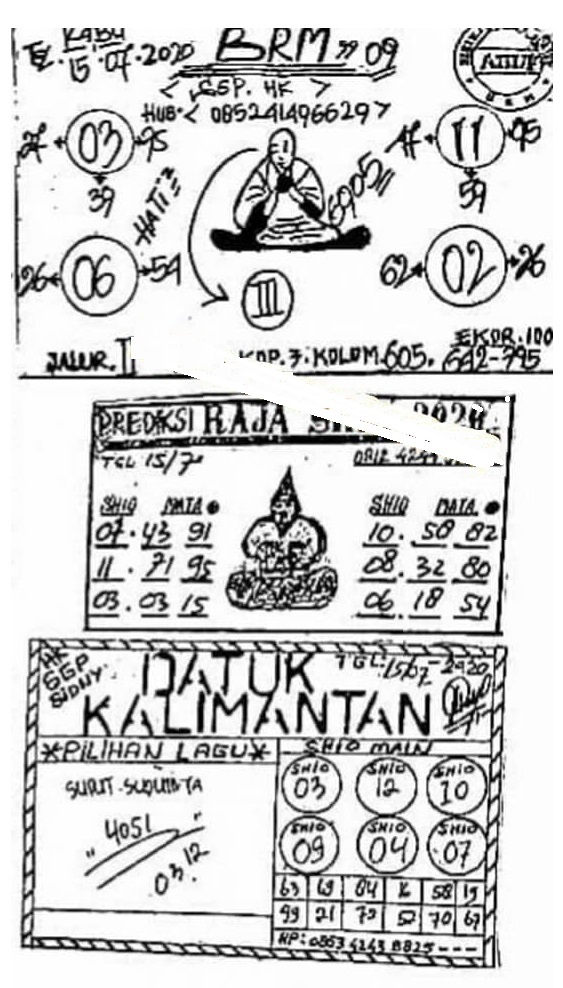 KABU
15.07.2020
BRM " 09
< SGP. HK >
HUB < 085241496629 >
03
95
39
11
95
59
HATI²
6905
06
54
26
02
62
26
III
EKOR.100
JALUR. II
KOP.3.KOLOM.605. 642-795
PREDIKSI RAJA
2020
TGL 15/7
0812 4294
SHIO MATA
SHIO MATA
07.43 91
10. 58 82
11. 71 95
08. 32 80
03. 03 15
06. 18 54
HK
SGP
SIDNY
DATUK
TGL: 15/07-2020
KALIMANTAN
*PILIHAN LAGU*
SHIO MAIN
4051
03 12
SHIO 03
SHIO 12
SHIO 10
SHIO 09
SHIO 04
SHIO 07
63 69 84 58 19
99 21 72 52 70 67
HP: 0853 4243 8825 ---